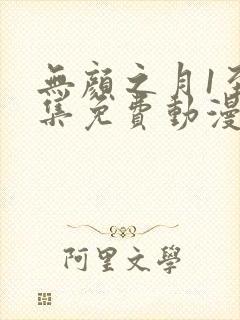 無顏之月1至
集免費動漫
阿里文學